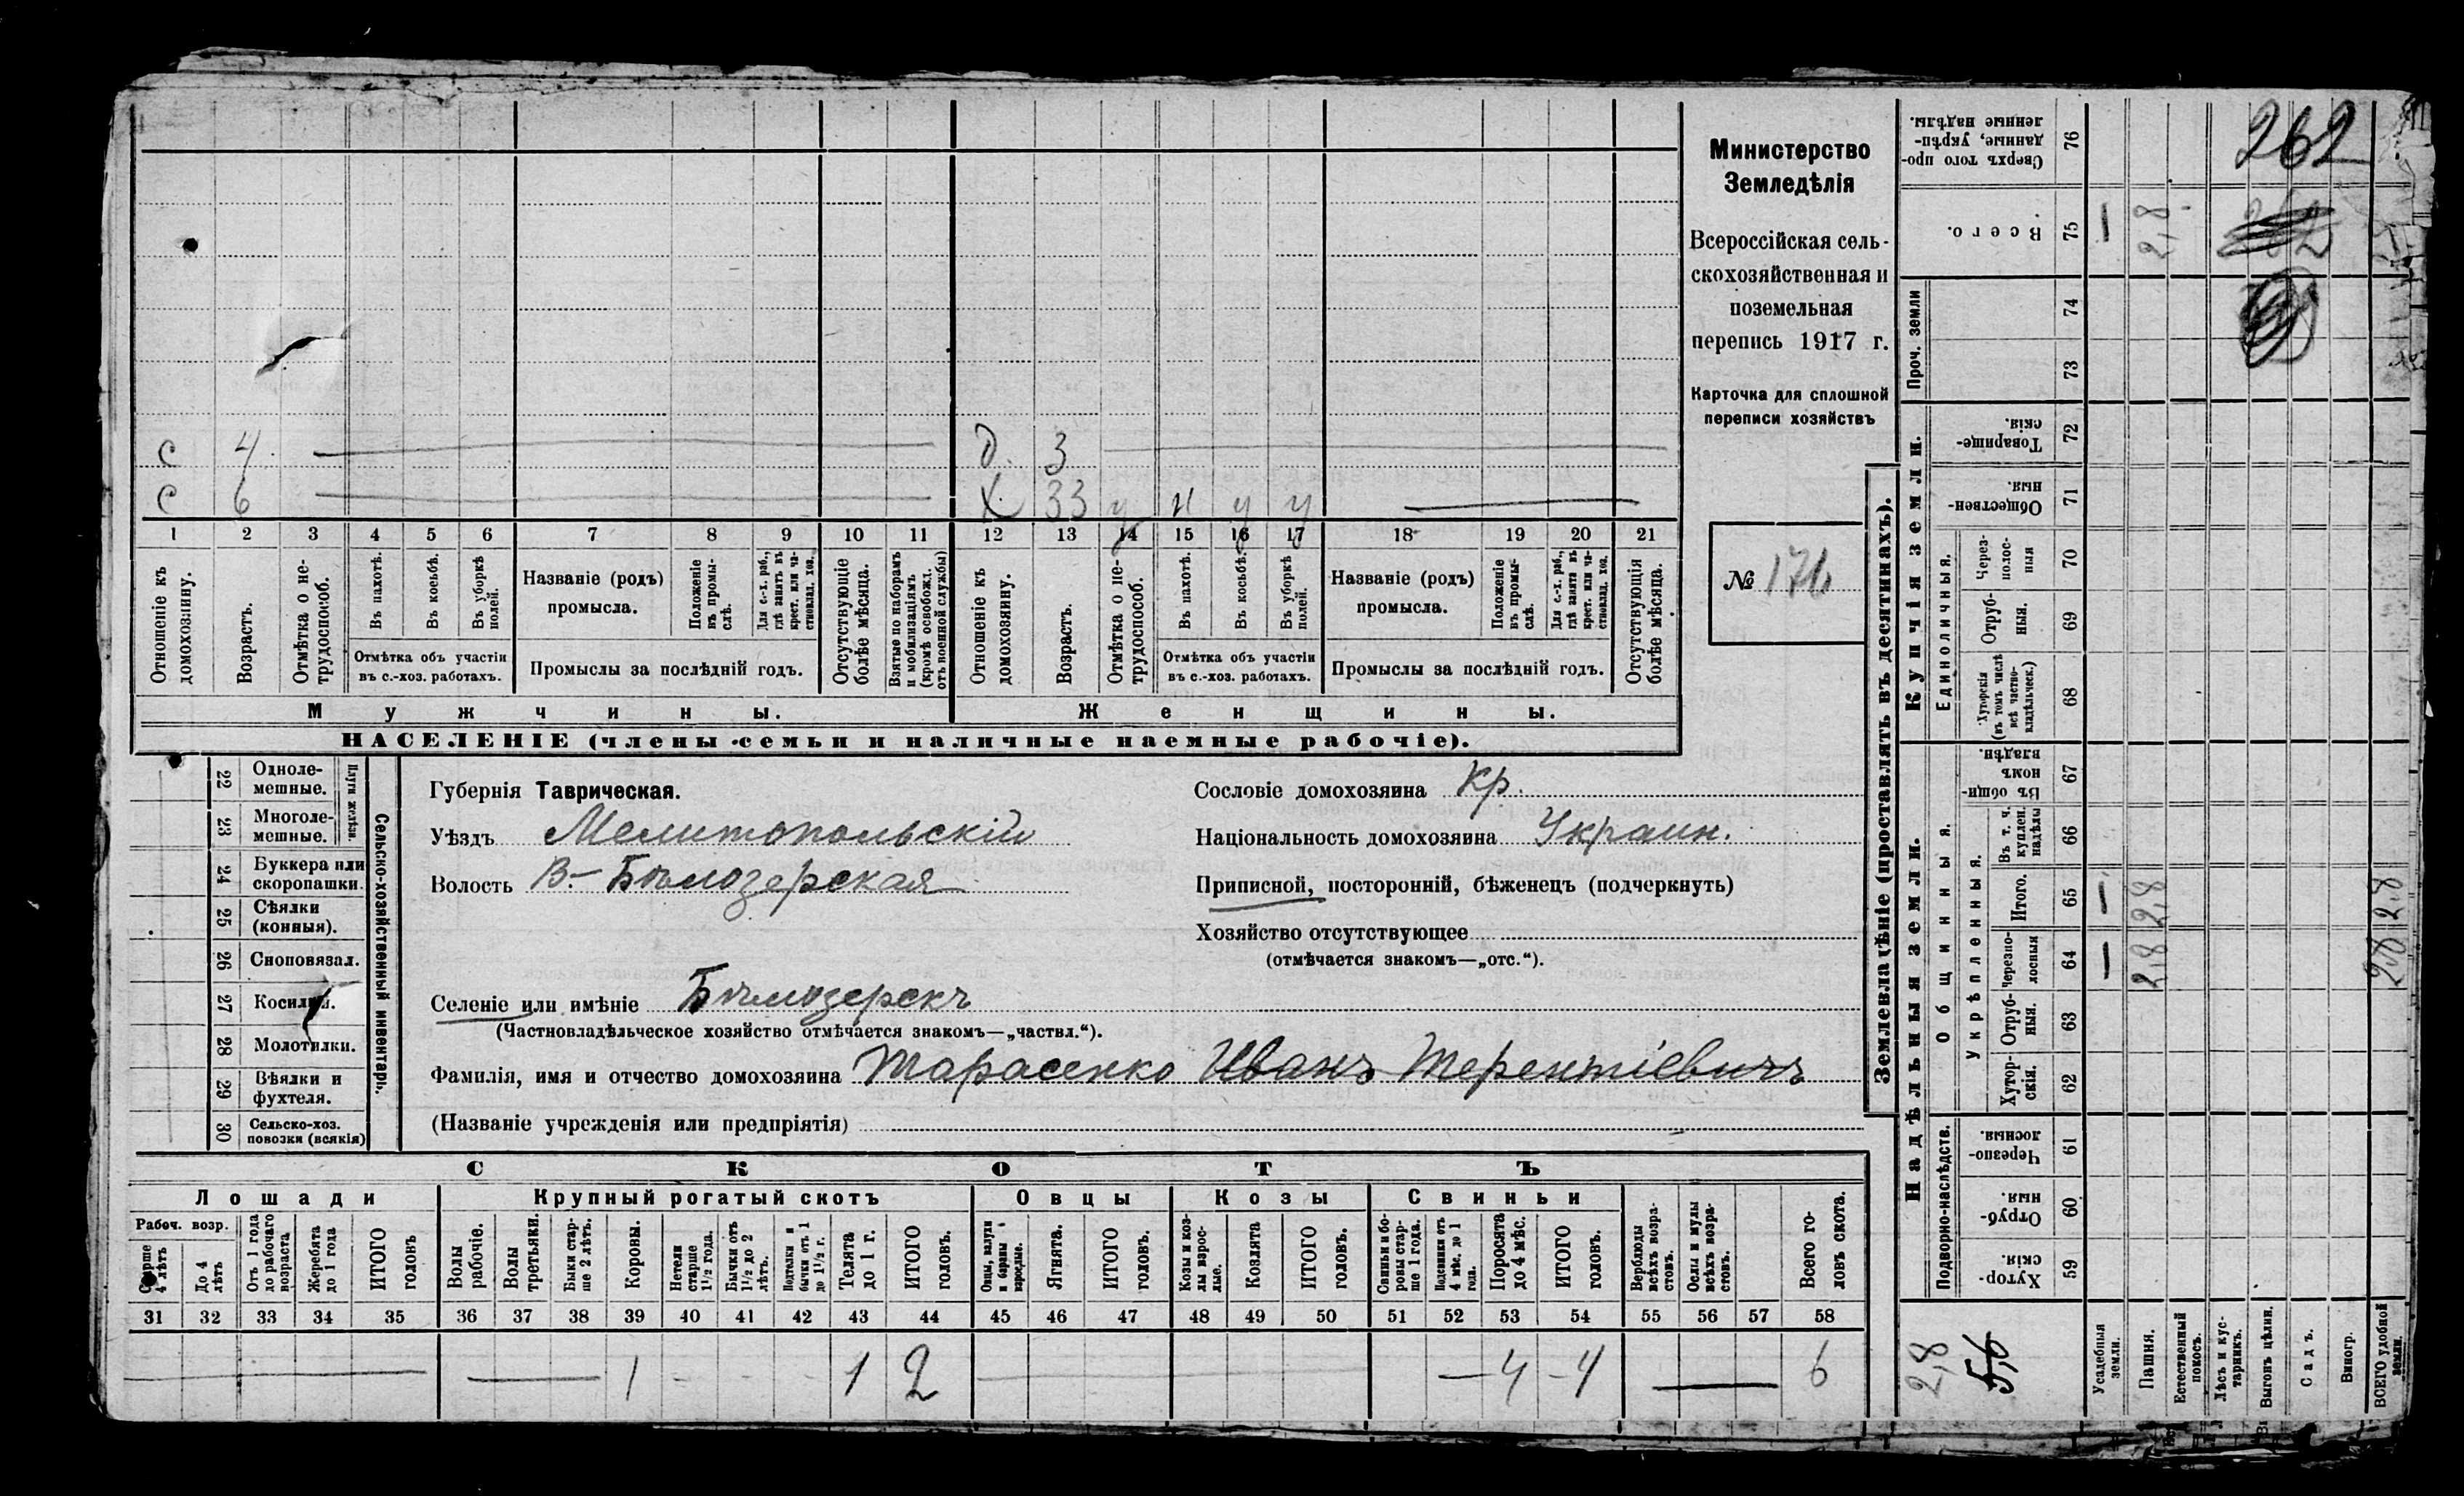 262
Министерство
Земледѣлія
Всероссійская сель-
скохозяйственная и
поземельная
перепись 1917 г.
Карточка для сплошной
переписи хозяйствъ
№
с 4 д. 3
с 6 х 33 у н у у
1 2 3 4 5 6 7 8 9 10 11 12 13 14 15 16 17 18 19 20 21
Отношеніе къ домохозяину.
Возрастъ.
Отмѣтка о не-
трудоспособ.
Въ пахотѣ.
Въ косьбѣ.
Въ уборкѣ полей.
Отмѣтка объ участіи
въ с.-хоз. работахъ.
Названіе (родъ)
промысла.
Положеніе въ промы-
слѣ.
Для с.-х. раб.,
гдѣ занятъ въ
крест. или ча-
стновлад. хоз.
Промыслы за послѣдній годъ.
Отсутствующіе
болѣе мѣсяца.
Взятые по наборамъ
и мобилизаціямъ
(кромѣ освобожд.
отъ военной службы)
Отношеніе къ
домохозяину.
Возрастъ.
Отмѣтка о не-
трудоспособ.
Въ пахотѣ.
Въ косьбѣ.
Въ уборкѣ полей.
Отмѣтка объ участіи
въ с.-хоз. работахъ.
Названіе (родъ)
промысла.
Положеніе
въ промы-
слѣ.
Для с.-х. раб.,
гдѣ занята въ
крест. или ча-
стновлад. хоз.
Промыслы за послѣдній годъ.
Отсутствующія
болѣе мѣсяца.
Мужчины.
Женщины.
НАСЕЛЕНІЕ (члены семьи и наличные наемные рабочіе).
Сельско-хозяйственный инвентарь.
22 Одноле-
мешные.
23 Многоле-
мешные.
24 Буккера или
скоропашки.
25 Сѣялки
(конныя).
26 Сноповязал.
27 Косилки.
28 Молотилки.
29 Вѣялки и
фухтеля.
30 Сельско-хоз.
повозки (всякія)
Губернія Таврическая.
Уѣздъ Мелитопольскій
Волость В.-Бѣлозерская
Селеніе или имѣніе Бѣлозерскъ
(Частновладѣльческое хозяйство отмѣчается знакомъ—„частвл.“).
Фамилія, имя и отчество домохозяина Тарасенко Иванъ Терентіевичъ
(Названіе учрежденія или предпріятія)
Сословіе домохозяина Кр.
Національность домохозяина Украин.
Приписной, посторонній, бѣженецъ (подчеркнуть)
Хозяйство отсутствующее
(отмѣчается знакомъ—„отс.“).
СКОТЪ
Лошади
Крупный рогатый скотъ
Овцы
Козы
Свиньи
Рабоч. возр.
Старше
4 лѣтъ
До 4
лѣтъ
Отъ 1 года
до рабочаго
возраста
Жеребята
до 1 года
ИТОГО
головъ
Волы
рабочіе.
Волы
третьяки.
Быки стар-
ше 2 лѣтъ.
Коровы.
Нетели
старше
1½ года.
Бычки отъ
1½ до 2
лѣтъ.
Подтелки и
бычки отъ 1
до 1½ г.
Телята
до 1 г.
ИТОГО
головъ.
Овцы, валухи
и бараны
взрослые.
Ягнята.
ИТОГО
головъ.
Козы и коз-
лы взрос-
лые.
Козлята
ИТОГО
головъ.
Свиньи и бо-
ровы стар-
ше 1 года.
Подсвинки отъ
4 мѣс. до 1
года.
Поросята
до 4 мѣс.
ИТОГО
головъ.
Верблюды
всѣхъ возра-
стовъ.
Ослы и мулы
всѣхъ возра-
стовъ.
Всего го-
ловъ скота.
31 32 33 34 35 36 37 38 39 40 41 42 43 44 45 46 47 48 49 50 51 52 53 54 55 56 57 58
1 1 2 4 4 6
Землевладѣніе (проставлять въ десятинахъ).
Надѣльныя земли.
Купчія земли.
Проч. земли
Подворно-наслѣдств.
Общинныя.
Укрѣпленныя.
Единоличныя.
Сверхъ того про-
данные, укрѣп-
ленные надѣлы.
76
Всего.
75
— 2,8
74
73
Товарище-
скія.
72
Обществен-
ныя.
71
Через-
полос-
ныя
70
Отруб-
ныя.
69
Хуторскія
(въ томъ числѣ
всѣ частно-
владѣльческ.)
68
Въ общи-
номъ
владѣн.
67
Въ т. ч.
куплен.
надѣлы
66
Итого.
65
— 2,8 2,8
Черезпо-
лосныя
64
— 2,8 2,8
Отруб-
ныя.
63
Хутор-
скія.
62
Черезпо-
лосныя.
61
Отруб-
ныя.
60
Хутор-
скія.
59
2,8
5,6
Усадебныя
земли.
Пашня.
Естественный
покосъ.
Лѣсъ и кус-
тарникъ.
Выгонъ цѣлин.
Садъ.
Виногр.
ВСЕГО удобной
земли.